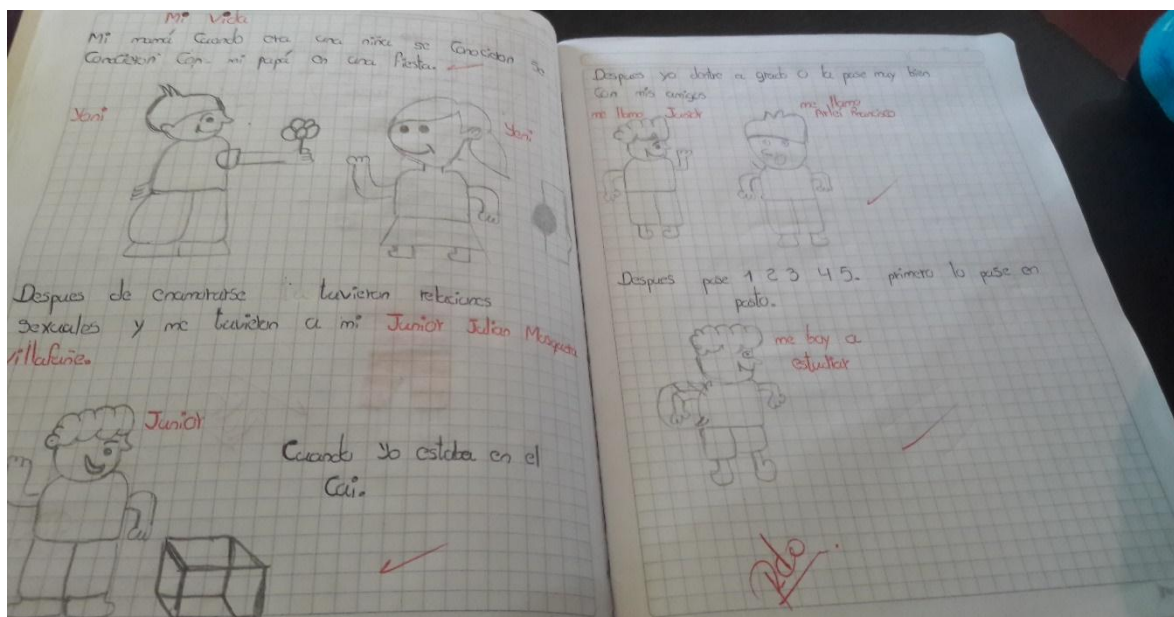 Mi vida
Mi mamá Cuando era una niña se Conocieon se
Conocieron Con mi papá en una Fiesta.
Yoni
Yeni
Despues de enamorarse tuvieron relaciones
sexuales y me tuvieron a mi Junior Julian Mosquera
Villafañe.
Junior
Cuando yo estaba en el
Cai.
Despues yo dentre a grado 0 la pase muy bien
Con mis amigos
me llamo Junior
me llamo
Francisco
Despues pase 1 2 3 4 5. primero lo puse en
pasto.
me boy a
estudiar
Rdo